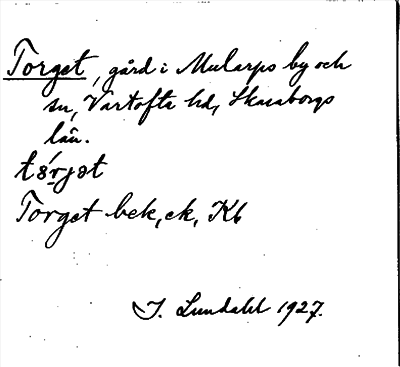 Torget, gård i Mularps by och
sn, Vartofta hd, Skaraborgs
län.
Torget bek, ek, Kb
I. Lundahl 1927.